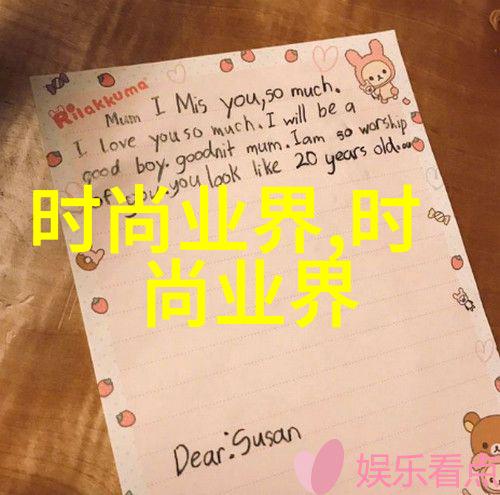 Rilakkuma
Mum I Mis you,so much.
I love you so much.I will be a
good boy.goodnit mum.Iam so worship
of you.you look like 20 years old....
时尚业界,时
尚业界
Dear:Susan
娱乐看点